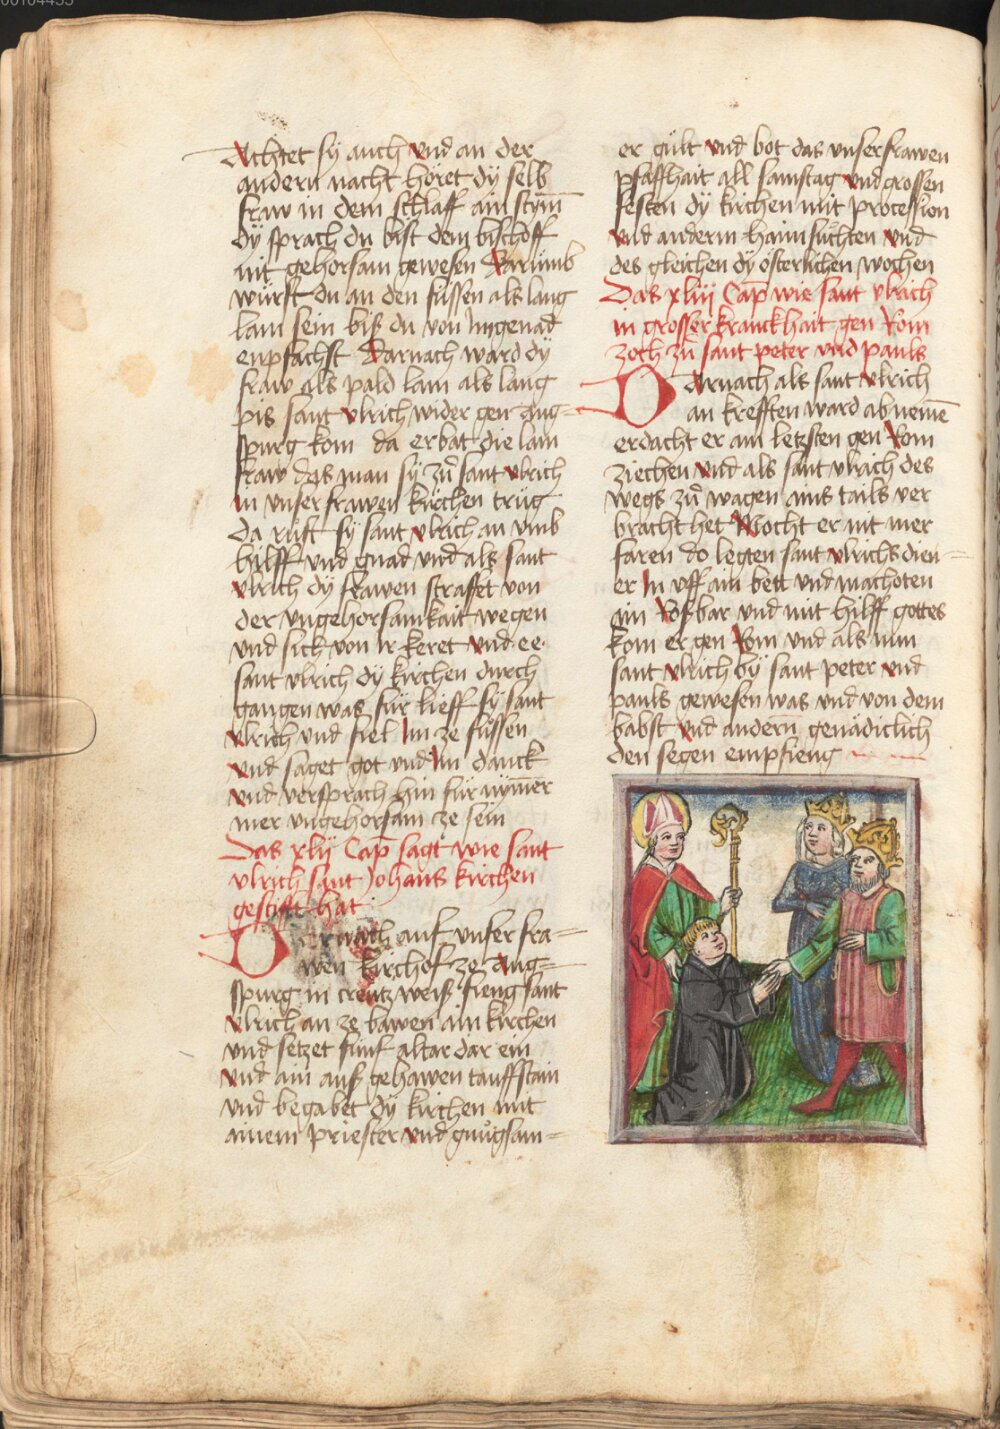 00104455
Achtet sy auch vnd an der
andern nacht höret dÿ selb
fraw in dem schlaff ain stym̄
dÿ sprach du bist dem bischoff
nit gehorsam gewesen Darūmb
würst du an den füssen als lang
lam sein biß du von Im genad
enpfachst Darnach ward dÿ
fraw als pald lam als lang
pis sant vlrich wider gen Aug=
spurg kom da erbat die lam
fraw das man sÿ zů sant vlrich
In vnser frawen kirchen trüg
Da rüft sÿ sant vlrich an vmb
hilff vnd gnad vnd als sant
vlrich dÿ frawen straffet von
der vngehorsamkait wegen
vnd sick von Ir keret vnd ee
sant vlrich dÿ kirchen durch
gangen was für lieff sÿ sant
vlrich vnd fiel Im ze füssen
vnd saget got vnd Im danck
vnd versprach hin für nym̄er
mer vngehorsam ze sein
Das xlij Cap̄ sagt wie sant
vlrich sant Johans kirchen
gestifft hat
Darnach auf vnser fra=
wen kirchof ze Aug=
spurg in creütz weiß fieng sant
vlrich an ze bawen ain kirchen
vnd setzet fünf altar dar ein
vnd ain auß gehawen tauffstain
vnd begabet dÿ kirchen mit
ainem priester vnd gnůgsam=
er gült vnd bot das vnser frawen
pfaffhait all samstag vnd grossen
festen dÿ kirchen mit procession
vnd anderm haimsuchten vnd
des gleichen dÿ österlichen wochen
Das xliij Cap̄ wie sant vlrich
in grosser kranckhait gen Rom
zoch zů sant peter vnd pauls
Darnach als sant vlrich
an krefften ward ab nemē
erdacht er am letzsten gen Rom
ziechen vnd als sant vlrich des
wegs zů wagen ains tails ver
bracht het Mocht er nit mer
faren do legten sant vlrichs dien=
er In vff ain bett vnd machoten
im Roßbar vnd mit hilff gottes
kom er gen Rom vnd als nun
sant vlrich bÿ sant peter vnd
pauls gewesen was vnd von dem
babst vnd andern genädiclich
den segen empfieng